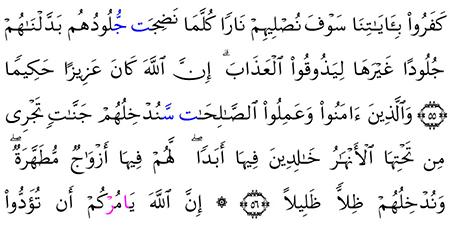 كَفَرُواْ بِـَٔايَـٰتِنَا سَوۡفَ نُصۡلِيهِمۡ نَارٗا كُلَّمَا نَضِجَت جُّلُودُهُم بَدَّلۡنَـٰهُمۡ
جُلُودًا غَيۡرَهَا لِيَذُوقُواْ ٱلۡعَذَابَۗ إِنَّ ٱللَّهَ كَانَ عَزِيزًا حَكِيمٗا
۝٥٥ وَٱلَّذِينَ ءَامَنُواْ وَعَمِلُواْ ٱلصَّـٰلِحَـٰت سَّنُدۡخِلُهُمۡ جَنَّـٰتٖ تَجۡرِي
مِن تَحۡتِهَا ٱلۡأَنۡهَـٰرُ خَـٰلِدِينَ فِيهَا أَبَدٗاۖ لَّهُمۡ فِيهَا أَزۡوَٰجٞ مُّطَهَّرَةٞۖ
وَنُدۡخِلُهُمۡ ظِلّٗا ظَلِيلًا ۝٥٦ ۞ إِنَّ ٱللَّهَ يَامُرۡكُمۡ أَن تُؤَدُّواْ